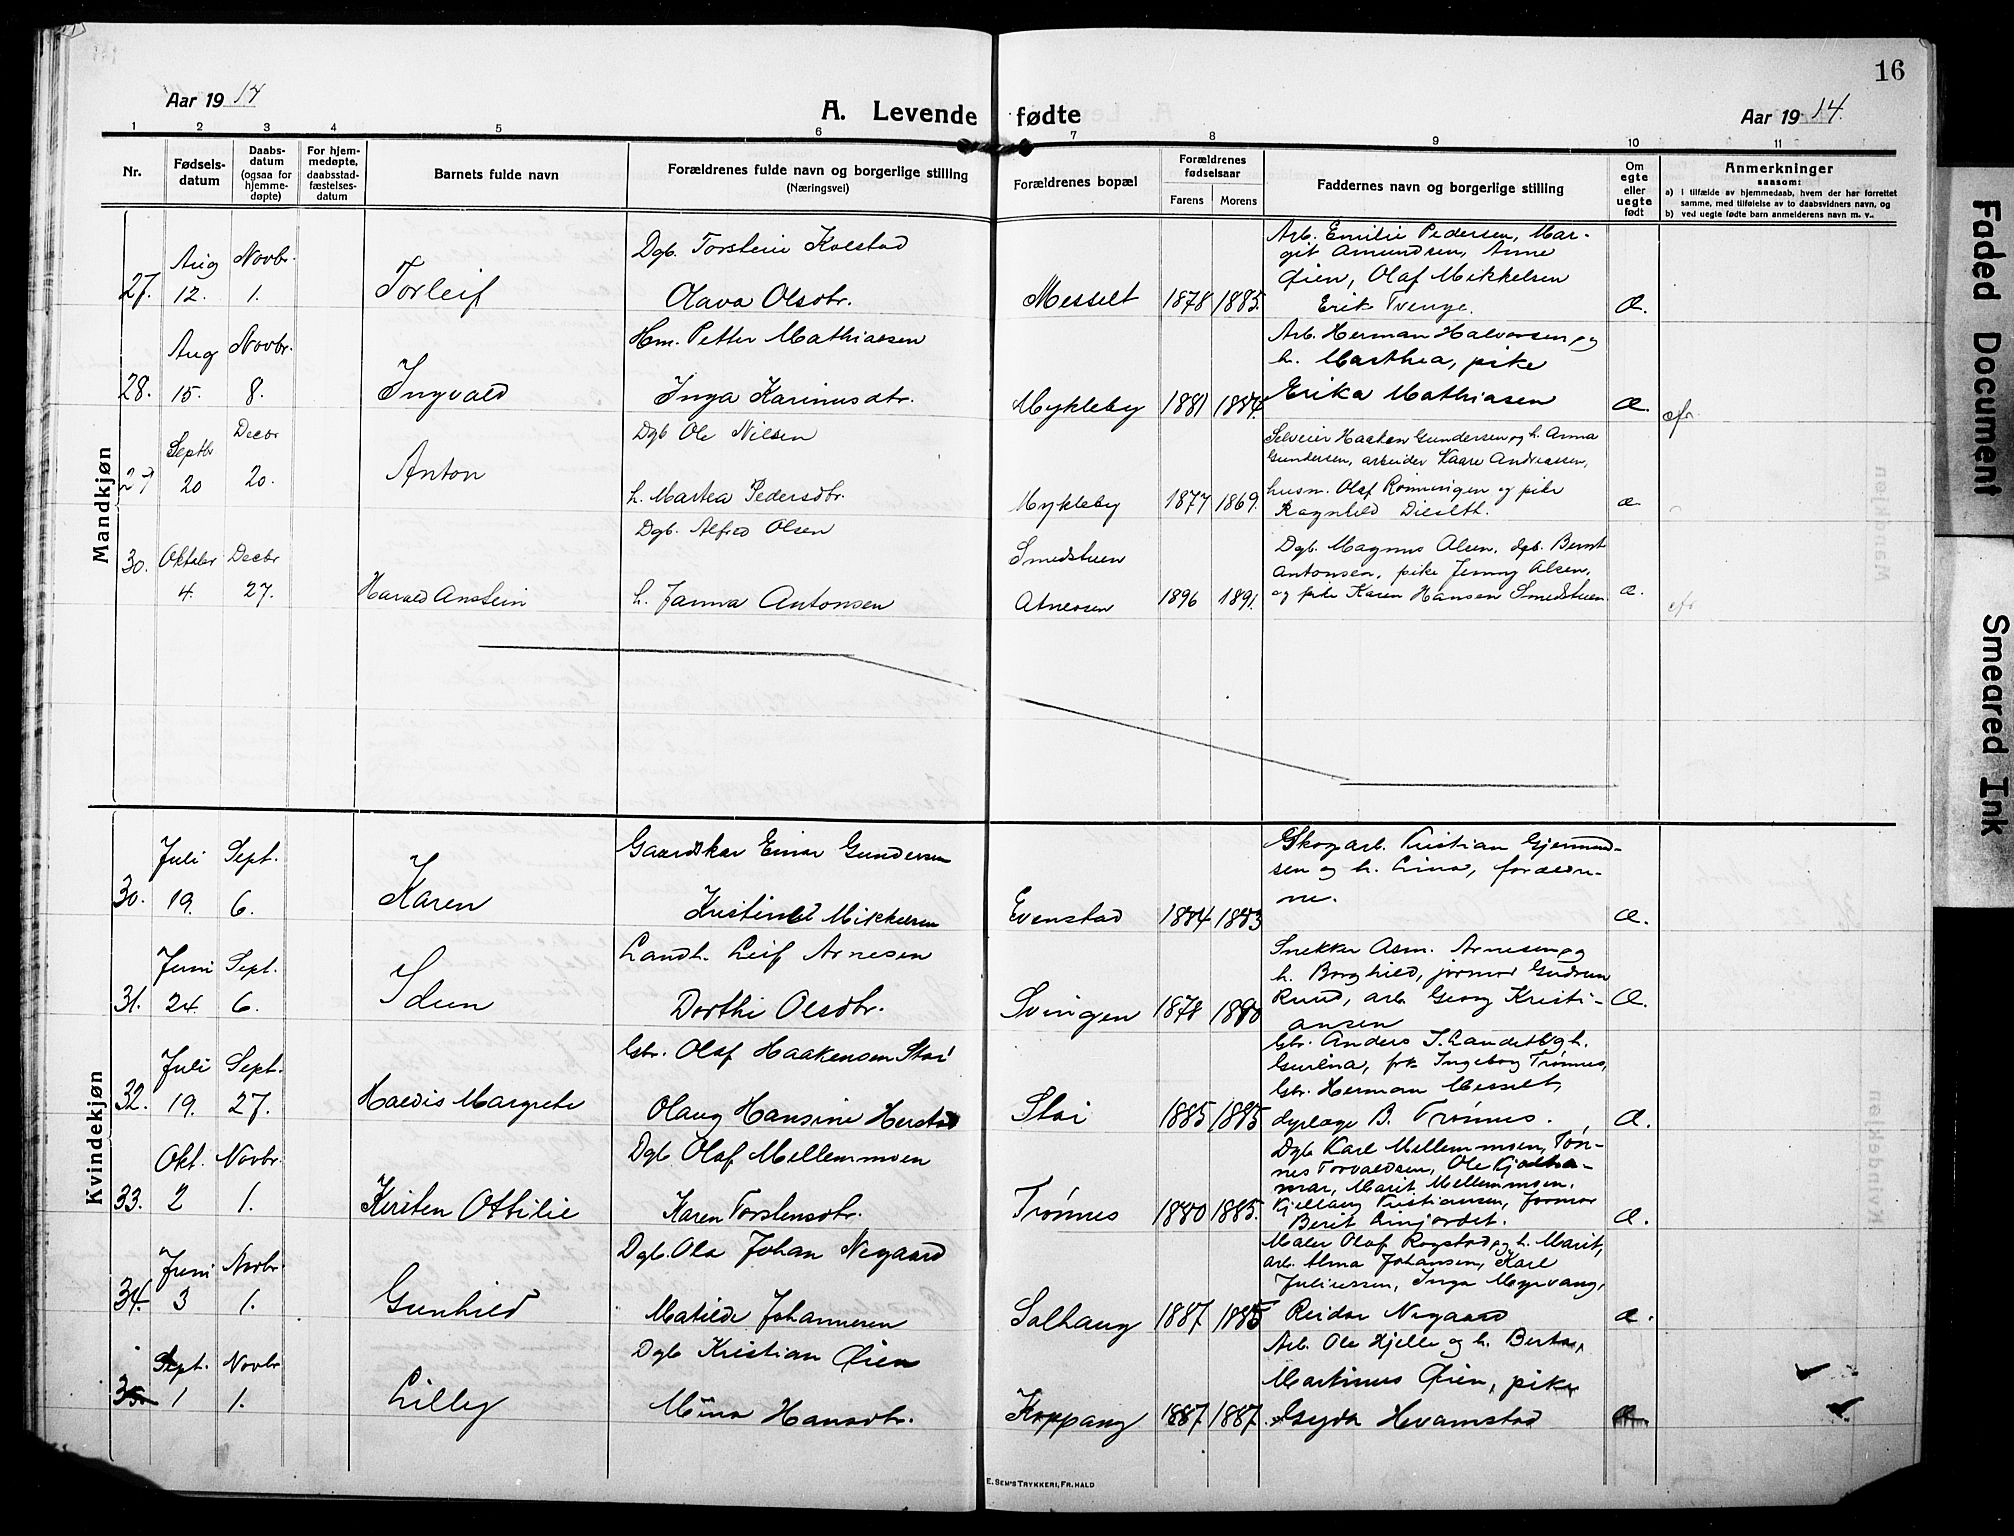 16
Aar 1914
A. Levende fødte
Aar 1914.
1 2 3 4 5 6 7 8 9 10 11
Nr.
Fødselsdatum
Daabsdatum (ogsaa for hjemmedøpte)
For hjemmedøpte, daabsstadfæstelsesdatum
Barnets fulde navn
Forældrenes fulde navn og borgerlige stilling (Næringsvei)
Forældrenes bopæl
Forældrenes fødselsaar
Farens Morens
Faddernes navn og borgerlig stilling
Om egte eller uegte født
Anmerkninger
saasom:
a) i tilfælde av hjemmedaab, hvem der har forrettet samme, med tilføielse av to daabsvidners navn, og
b) ved uegte fødte barn anmelderens navn m. v..
Mandkjøn
27. Aug 12. Novbr. 1. Torleif
Dgb. Torstein Kolstad
Olava Olsdtr.
Messelt 1878 1885.
Arb. Emilie Pedersen, Mar-
git Amundsen, Anne
Øien, Olaf Mikkelsen
Erik Trenge.
Æ.
28. Aug 15. Novbr. 8. Ingvald
Hm. Petter Mathiassen
Inga Karinusdtr.
Mykleby 1881 1884.
Arb. Herman Halvorsen og
h. Marthea, pike
Erika Mathiasen
Æ.
29 Septbr 20 Decbr 20. Anton
Dgb Ole Nilsen
h. Martea Pedersdtr.
Mykleby 1877 1869.
Selveier Haaken Gundersen og h. Anna
Gundersen, arbeider Kaare Andreassen,
husm. Olaf Rønningen og pike
Ragnhild
æ
30. Oktober 4. Decbr 27. Harald Anstein
Dgb. Alfred Olsen
h. Janna Antonsen
Smedstuen
Atneosen 1896 1891.
Dgb. Magnus Olsen, dgb. Bernt
Antonsen, pike Jenny Olsen,
og pike Karen Hansen Smedstuen
æ.
Kvindekjøn
30. Juli 19. Sept. 6. Karen
Gaardskar Einar Gundersen
Kristine Mikkelsen
Evenstad 1884 1883
Skogarb. Kristian Gjermund-
sen og h. Lina, foræeldre-
ne.
Æ.
31. Juni 24. Sept. 6. Idun
Landh. Leif Arnesen
Dorthi Olsdtr.
Svingen 1878 1880
Snekker Asm. Arnesen og
h. Borghild, jormor Gudrun
Ruud, arb. Georg Kristi-
ansen
Æ.
32. Juli 19. Sept. 27. Haldis Margrete
Gbr. Olaf Haakensen Stai
Olaug Hansine Herstad
Stai 1885 1885
Gbr. Anders J. Landet og h.
Gurina, frk Ingeborg Trønnes,
Gbr. Herman Messelt,
dyrlæge B. Trønnes.
Æ.
33. Okt. 2 Novbr. 1. Kirsten Ottilie
Dgb. Olaf Mellemmoen
Karen Torstensdtr.
Trønnes 1880 1885.
Dgb Karl Mellemmoen, Tøn-
nes Torvaldsen, Ole
Marit Mellemmoen,
Kjellaug Kristiansen, Jormor
Berit Linjordet.
Æ.
34. Juni 3 Novbr 1. Gunhild
Dgb. Ola Johan Negaard
Matilde Johannesen
Solhaug 1887 1885
Maler Olaf Rogstad og h. Marit,
arb. Alma Johansen, Karl
Juliussen, Inga Myrvang,
Reidar Negaard
æ.
35 Sept. 1 Novbr 1. Lilly
Dgb Kristian Øien
Mina Hansdtr.
Koppang 1887 1887.
Arb. Ole Hjelle og h. Berta,
Martinus Øien, pike
Hvamstad
Æ
E. Sem's Trykkeri, Fr.hald
Faded Document
Smeared Ink